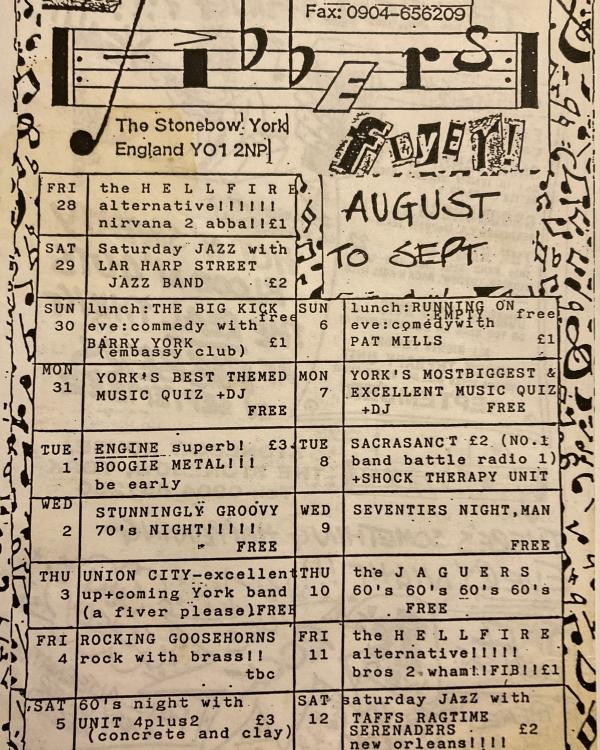 Fax: 0904-656209
Fibbers
The Stonebow York
England YO1 2NP
FLYER!
AUGUST
TO SEPT
FRI 28
the HELLFIRE
alternative!!!!!!
nirvana 2 abba!!£1
SAT 29
Saturday JAZZ with
LAR HARP STREET
JAZZ BAND £2
SUN 30
lunch:THE BIG KICK free
eve:commedy with
BARRY YORK £1
(embassy club)
MON 31
YORK'S BEST THEMED
MUSIC QUIZ +DJ
FREE
TUE 1
ENGINE superb! £3.
BOOGIE METAL!!!
be early
WED 2
STUNNINGLY GROOVY
70's NIGHT!!!!!
FREE
THU 3
UNION CITY-excellent
up+coming York band
(a fiver please)FREE
FRI 4
ROCKING GOOSEHORNS
rock with brass!!
tbc
SAT 5
60's night with
UNIT 4plus2 £3
(concrete and clay)
SUN 6
lunch:RUNNING ON
EMPTY free
eve:comedywith
PAT MILLS £1
MON 7
YORK'S MOSTBIGGEST &
EXCELLENT MUSIC QUIZ
+DJ FREE
TUE 8
SACRASANCT £2 (NO.1
band battle radio 1)
+SHOCK THERAPY UNIT
WED 9
SEVENTIES NIGHT,MAN
FREE
THU 10
the JAGUERS
60's 60's 60's 60's
FREE
FRI 11
the HELLFIRE
alternative!!!!!
bros 2 wham!!FIB!!£1
SAT 12
saturday JAzZ with
TAFFS RAGTIME
SERENADERS £2
new orleans!!!!